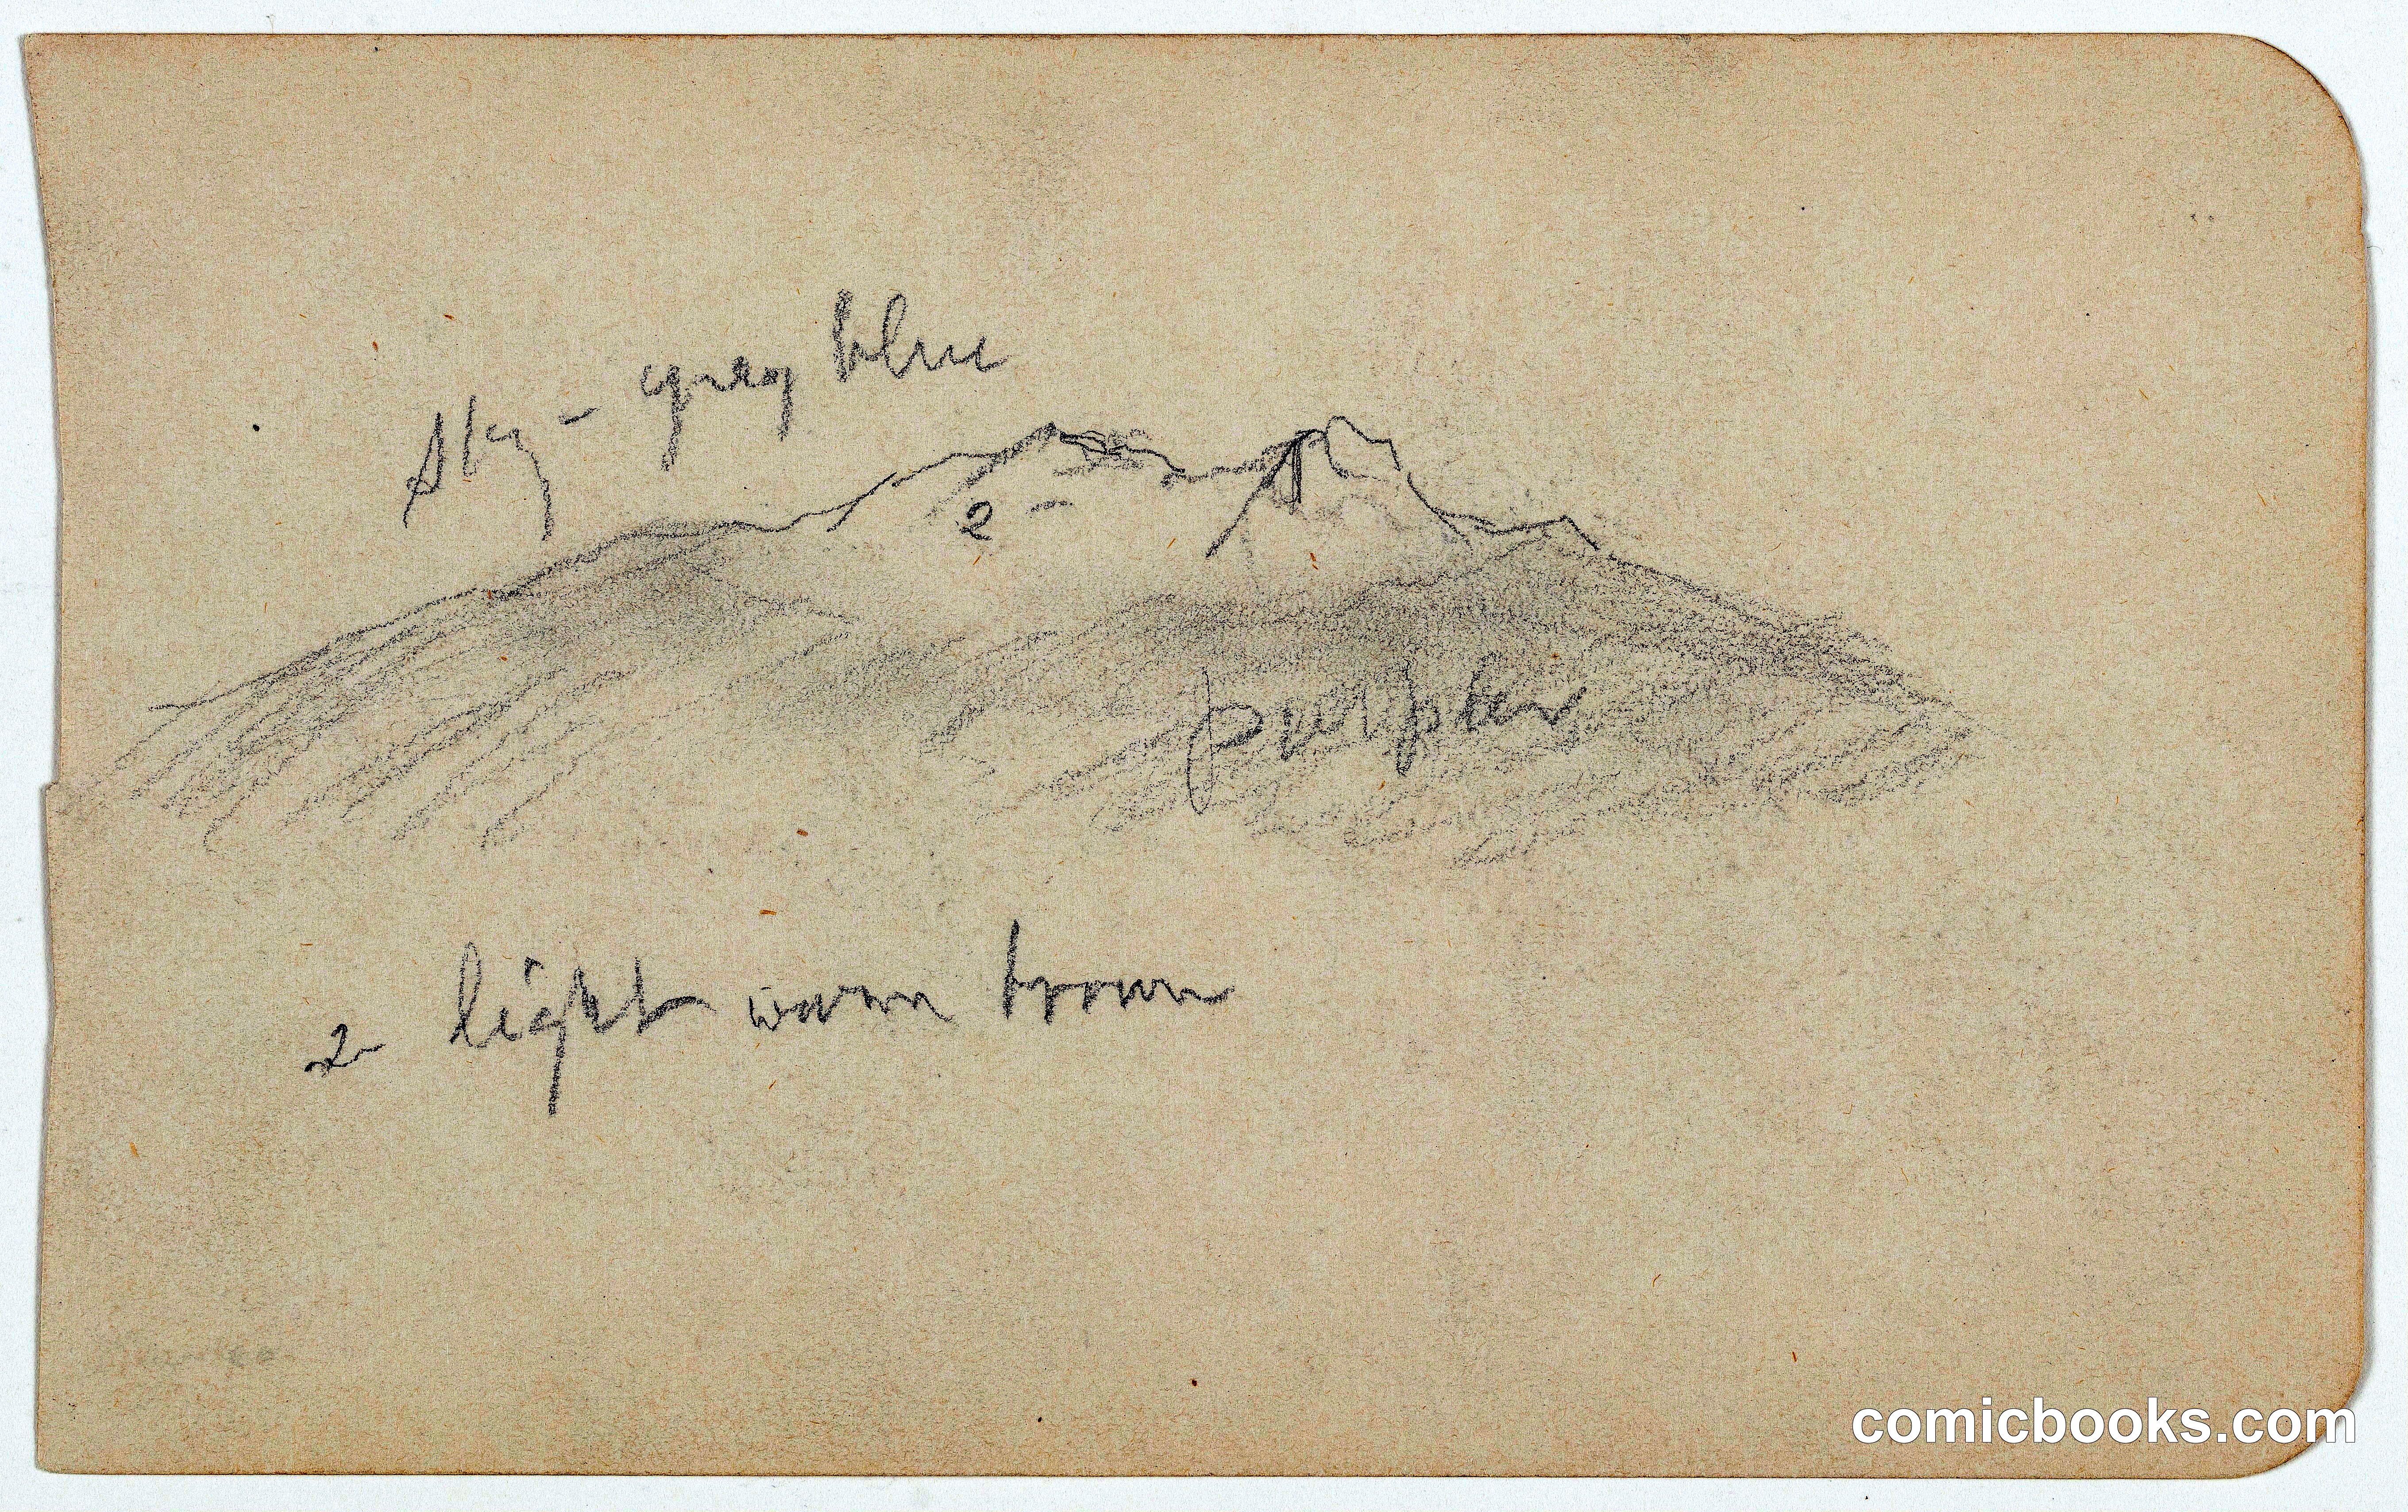 Sky - grey blue
2
purple
2 light warm brown
comicbooks.com